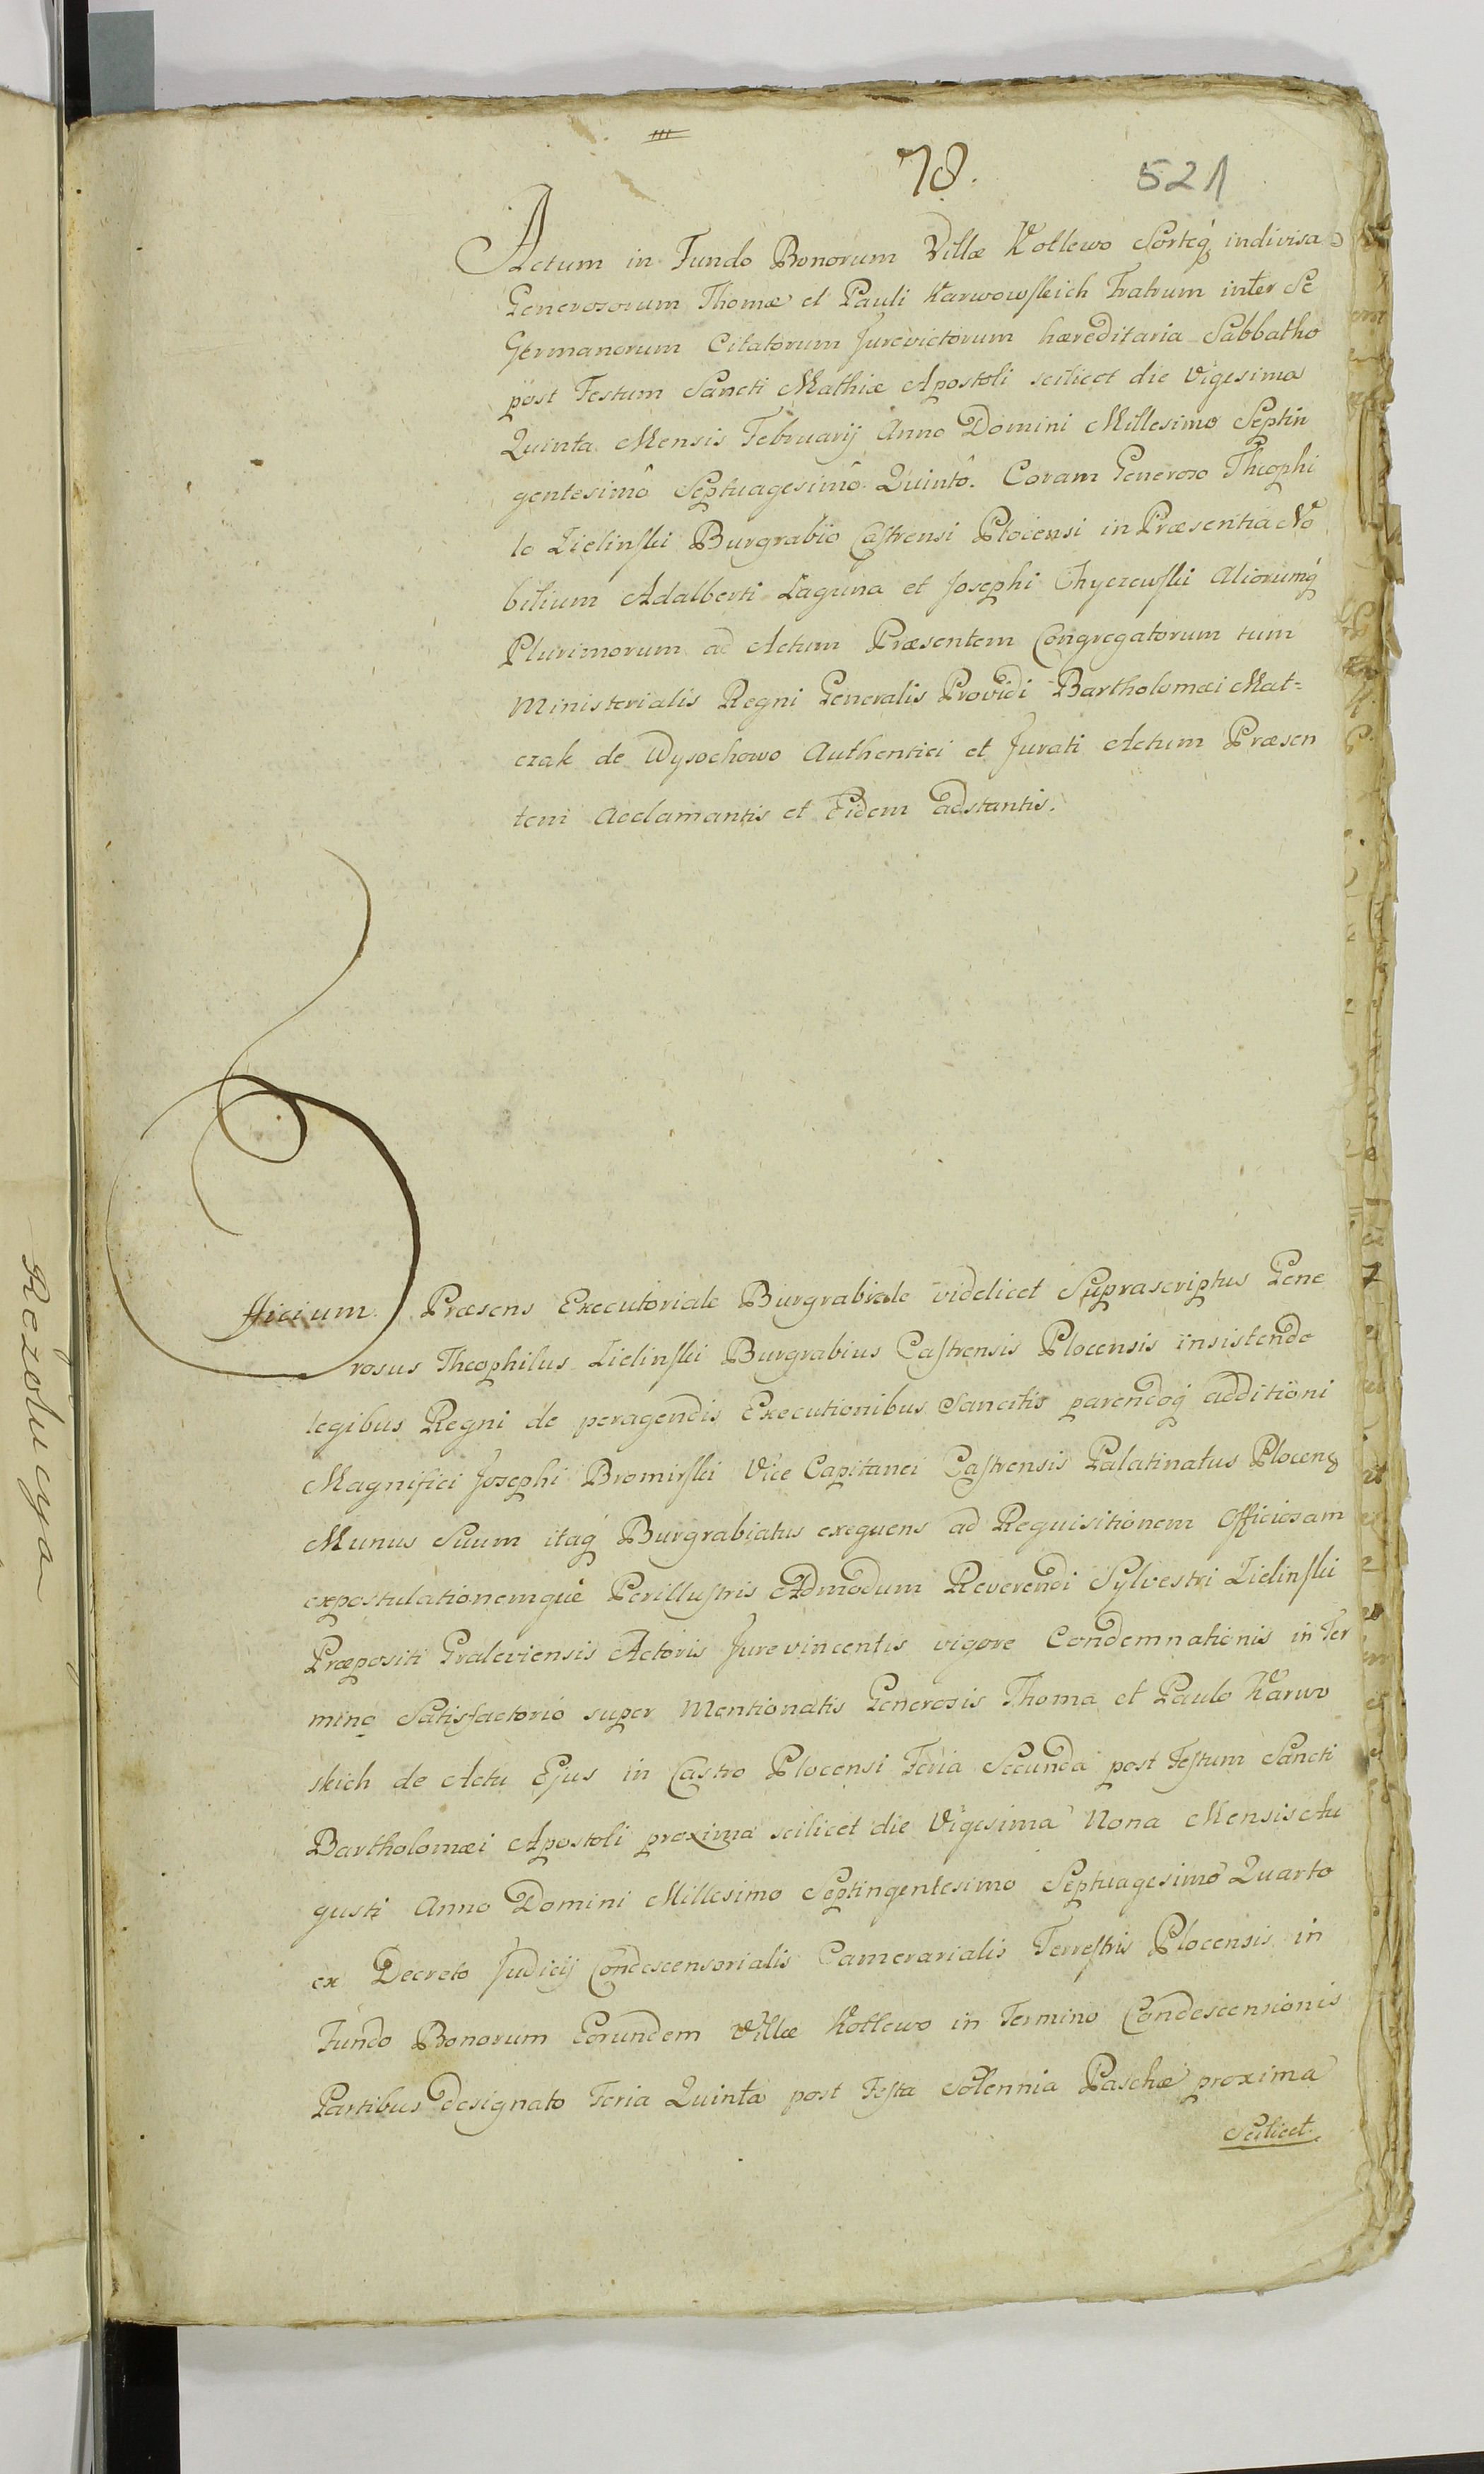 78.
521
Actum in Fundo Bonorum Villæ Kotlewo Sorteq́ indivisa
Generosorum Thomæ et Pauli Karwowskich Fratrum inter Se
Germanorum Citatorum Jurevictorum hæreditaria Sabbatho
post Festum Sancti Mathiæ Apostoli scilicet die Vigesima
Quinta Mensis Februarij Anno Domini Millesimo Septin
gentesimô Septuagesimô Quintô. Coram Generoso Theophi
lo Zielinski Burgrabio Castrensi Plocensi in Præsentia No
bilium Adalberti Laguna et Josephi Chyczewski Aliorumq́
Plurimorum ad Actum Præsentem Congregatorum tum
Ministerialis Regni Generalis Providi Bartholomæi Mat=
czak de Wysochowo Authentici et Jurati Actum Præsen
tem Acclamantis et Eidem adstantis.
Officium Præsens Executoriale Burgrabiale videlicet Suprascriptus Gene
rosus Theophilus Zielinski Burgrabius Castrensis Plocensis insistendo
legibus Regni de peragendis Executionibus Sancitis parendoq́ additioni
Magnifici Josephi Bromirski Vice Capitanei Castrensis Palatinatus Plocens
Munus Suum itaq́ Burgrabiatus exequens ad Requisitionem Officiosam
expostulationemque Perillustris Admodum Reverendi Sylvestri Zielinski
Præpositi Graleviensis Actoris Jurevincentis vigore Condemnationis in Ter
mino Satisfactorio super Mentionatis Generosis Thoma et Paulo Karwo
skich de Actu Ejus in Castro Plocensi Feria Secunda post Festum Sancti
Bartholomæi Apostoli proxima scilicet die Vigesima Nona Mensis Au
gusti Anno Domini Millesimo Septingentesimo Septuagesimo Quarto
ex Decreto Judicij Condescensorialis Camerarialis Terrestris Plocensis in
Fundo Bonorum Eorundem Villæ Kotlewo in Termino Condescensionis
Partibus designato Feria Quinta post Festa Solennia Paschæ proxima
Scilicet.
Rezolucya